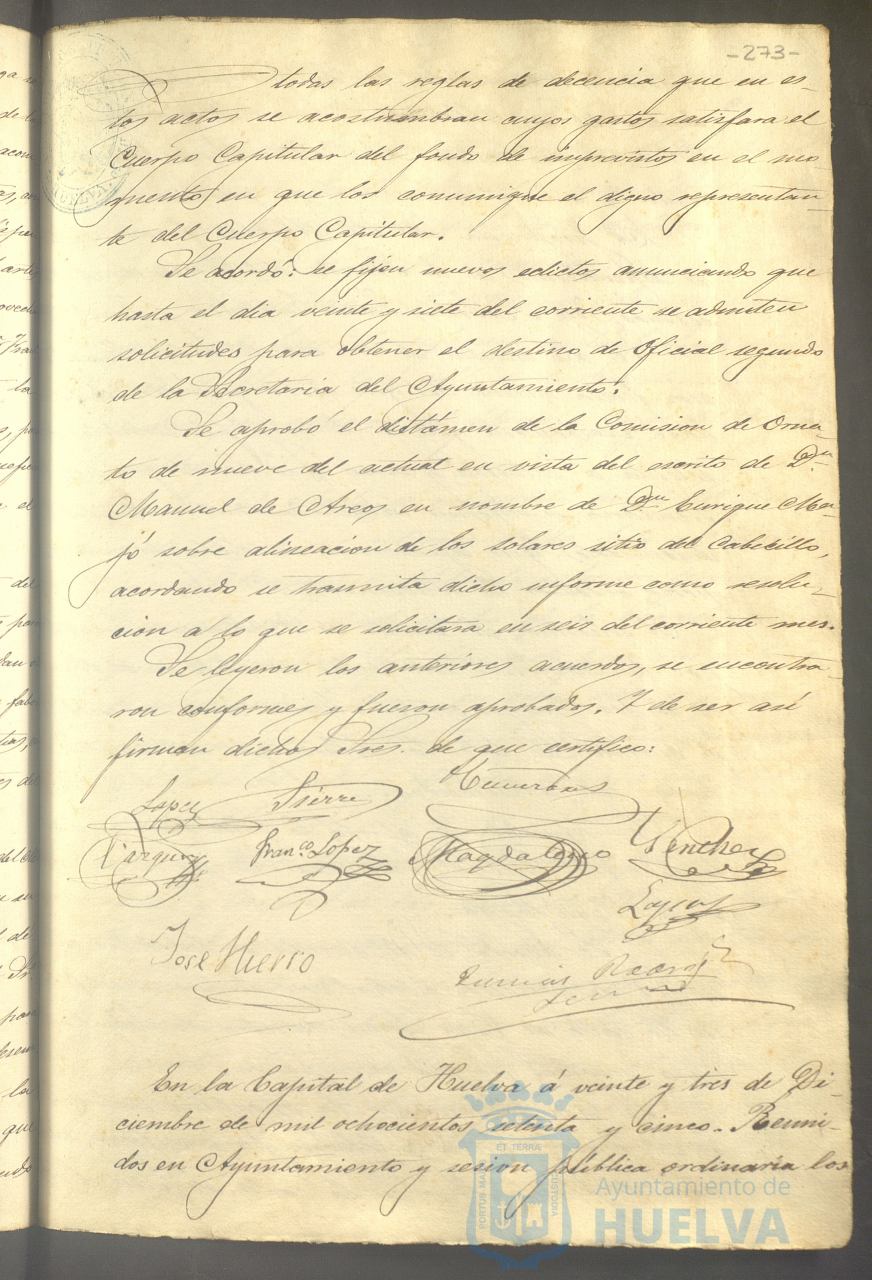 -273-
todas las reglas de decencia que en es-
tos actos se acostumbran cuyos gastos satisfara el
Cuerpo Capitular del fondo de imprevistos en el mo-
mento en que los comunique el digno representan-
te del Cuerpo Capitular.
Se acordó: se fijen nuevos edictos anunciando que
hasta el dia veinte y siete del corriente se admiten
solicitudes para obtener el destino de Oficial segundo
de la Secretaria del Ayuntamiento.
Se aprobó el dictámen de la Comision de Orna-
to de nueve del actual en vista del escrito de Dn
Manuel de Arcos en nombre de Dn Enrique Mo-
jó sobre alineacion de los solares sitio del Cabecillo,
acordando se trasmita dicho informe como resolu-
cion á lo que se solicitara en seis del corriente mes.
Se leyeron los anteriores acuerdos, se encontra-
ron conformes y fueron aprobados. Y de ser así
firman dichos Sres. de que certifico:
Lopez Sierra
Vazquez Franco. Lopez Magdaleno Sanchez
José Hierro
En la Capital de Huelva á veinte y tres de Di-
ciembre de mil ochocientos setenta y cinco. Reuni-
dos en Ayuntamiento y sesion pública ordinaria los
PORTUS MARIS ET TERRAE CUSTODIA
Ayuntamiento de
HUELVA